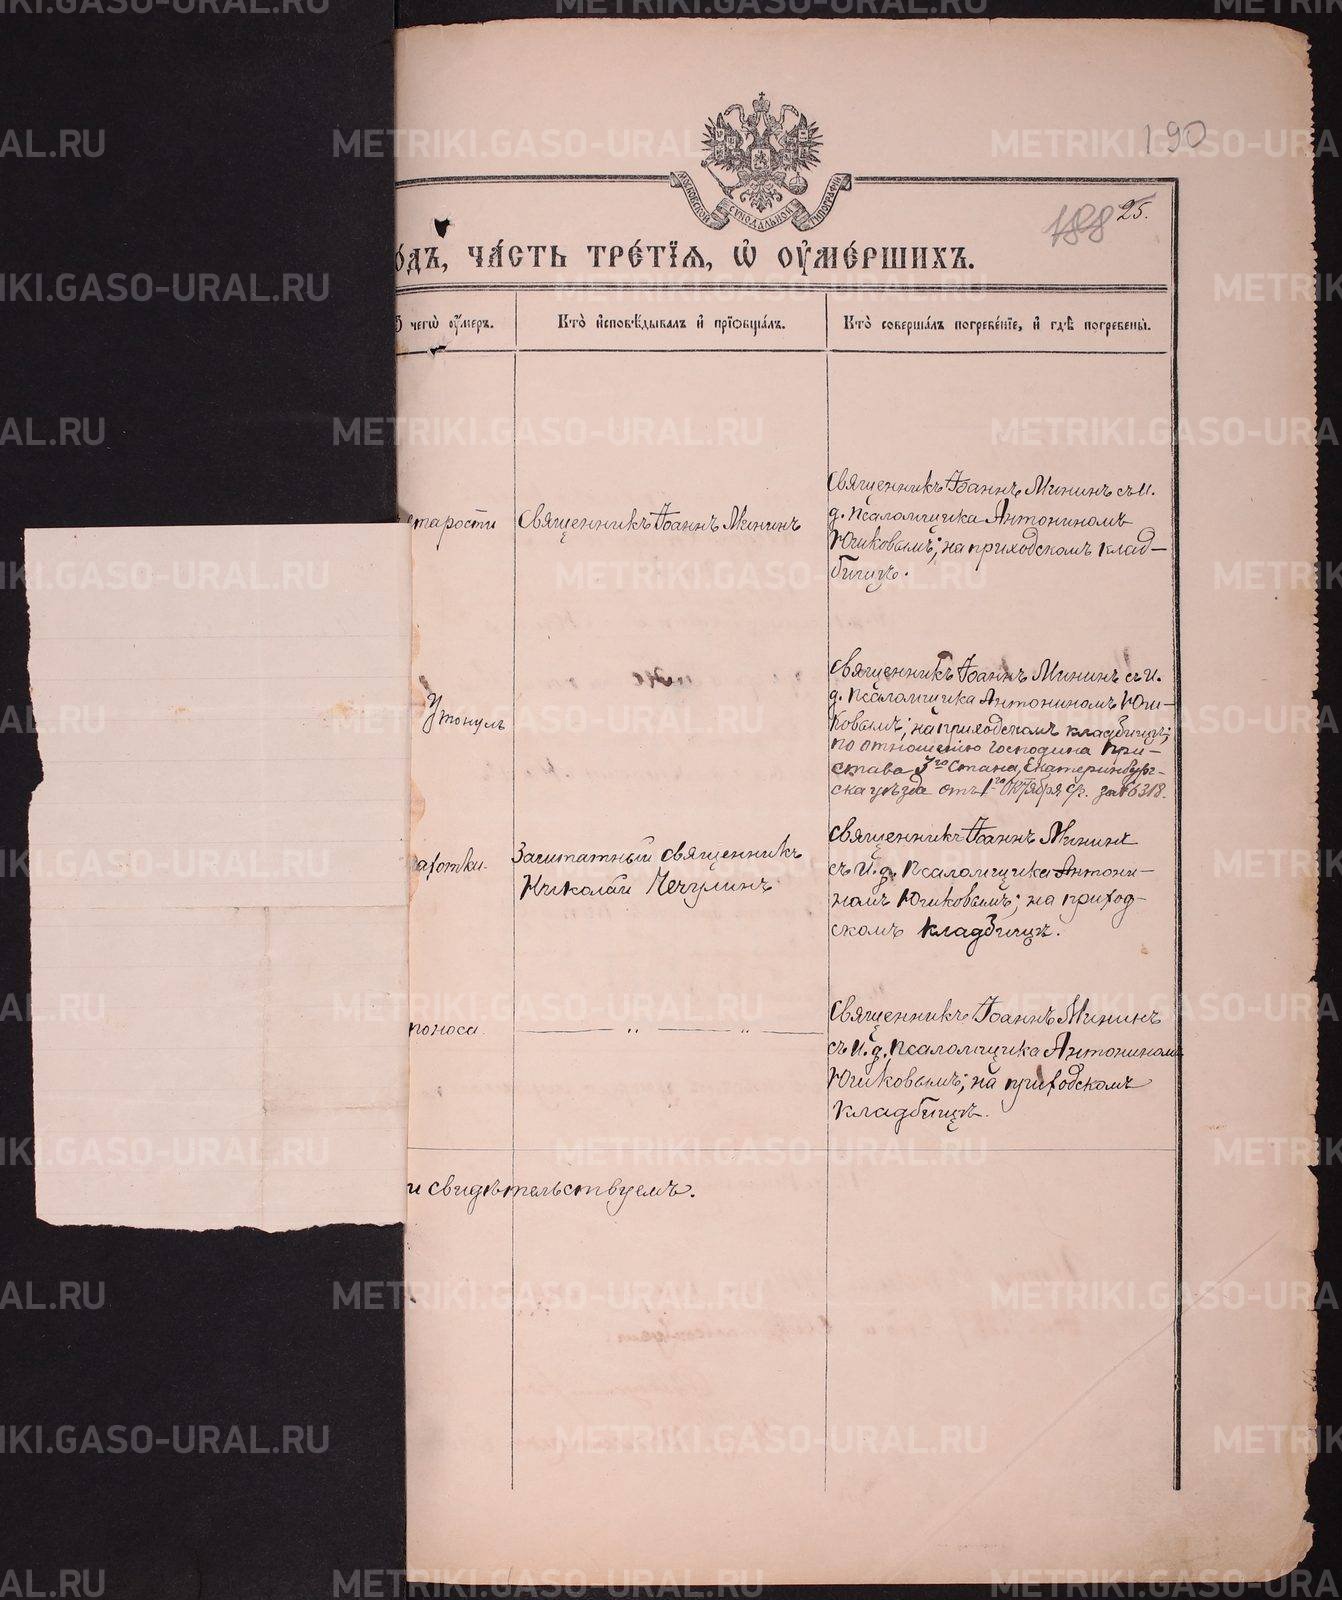 190
188 25.
МОСКОВСКОЙ СѴНОДАЛЬНОЙ ТИПОГРАФІИ
о́дъ, ЧА́СТЬ ТРЕ́ТІѦ, Ѽ ОУ҆МЕ́РШИХЪ.
чегѡ̀ оу҆́меръ.
Кто̀ и҆сповѣ́дывалъ и҆ прїѡбща́лъ.
Кто̀ соверша́лъ погребе́нїе, и҆ гдѣ̀ погребены̀.
старости
Священникъ Іоаннъ Мининъ
Священникъ Іоаннъ Мининъ съ И.
д. псаломщика Антониномъ
Югиковымъ; на приходскомъ клад-
бищѣ.
Утонулъ
Священникъ Іоаннъ Мининъ съ И.
д. псаломщика Антониномъ Юги-
ковымъ; на приходскомъ кладбищѣ;
по отношенію Господина При-
става 3го стана, Екатеринбург-
ска уѣзда отъ 1го Октября с/г. за № 6318.
чахотки.
Заштатный священникъ
Николай Чечулинъ
Священникъ Іоаннъ Мининъ
съ И. д. псаломщика Антони-
номъ Югиковымъ; на приход-
скомъ кладбищѣ.
поноса.
— „ — „ —
Священникъ Іоаннъ Мининъ
съ И. д. псаломщика Антониномъ
Югиковымъ; на приходскомъ
кладбищѣ.
и свидѣтельствуемъ.
METRIKI.GASO-URAL.RU